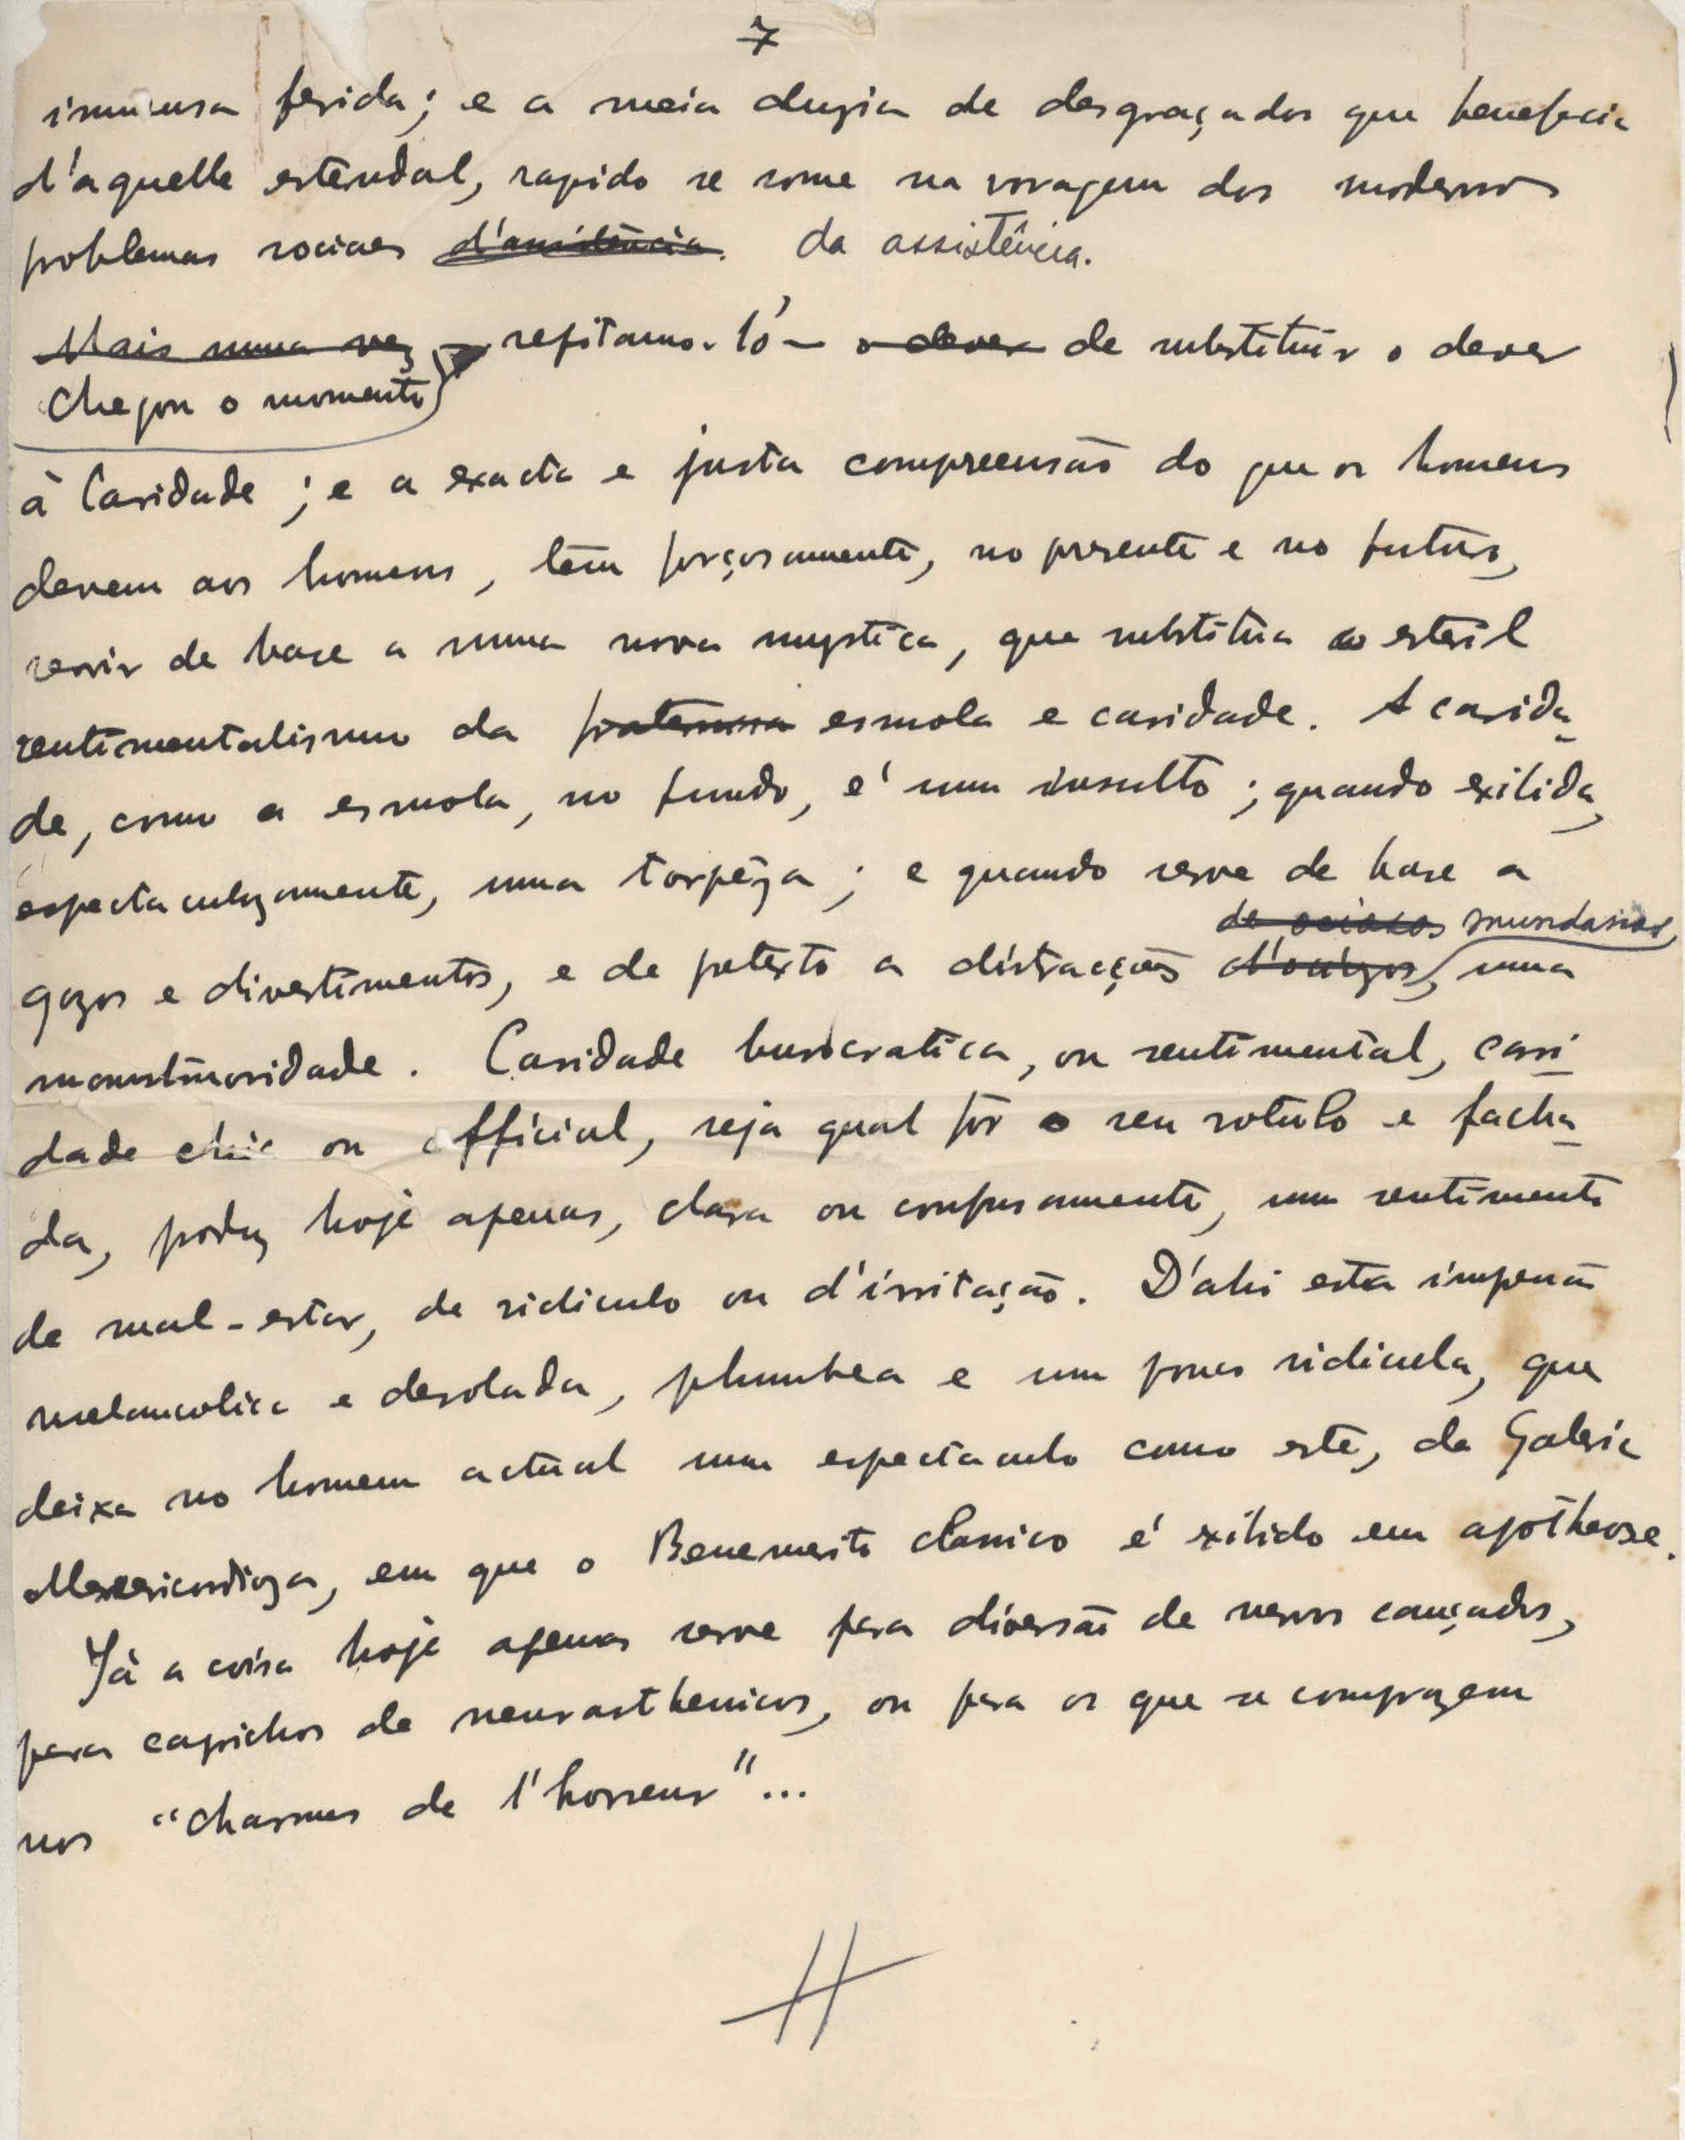 7
immensa ferida; e a meia duzia de desgraçados que beneficia
d'aquelle estendal, rapido se some na voragem dos modernos
problemas sociaes d'assistência. da assistência.
Mais uma vez – repitamo-lo – o dever de substituir o dever
Chegou o momento
à Caridade; e a exacta e justa compreensão do que os homens
devem aos homens, tem forçosamente, no presente e no futuro,
servir de base a uma nova mystica, que substitua o esteril
sentimentalismo da esmola e caridade. A carida-
de, como a esmola, no fundo, é um insulto; quando exibida,
espectaculozamente, uma torpêza; e quando serve de base a
de ociosos mundanas,
gozos e divertimentos, e de pretexto a distracções uma
monstruosidade. Caridade burocratica, ou sentimental, cari-
dade chic ou official, seja qual fôr o seu rotulo e facha-
da, produz hoje apenas, clara ou confusamente, um sentimento
de mal-estar, de ridiculo ou d'irritação. D'ahi esta impressão
melancolica e desolada, plumbea e um pouco ridicula, que
deixa no homem actual um espectaculo como este, da Galeria
Misericordioza, em que o Benemerito classico é exibido em apotheose.
Já a coisa hoje apenas serve para diversão de nervos cançados,
para caprichos de neurasthenicos, ou para os que se comprazem
nos "charmes de l'horreur"...